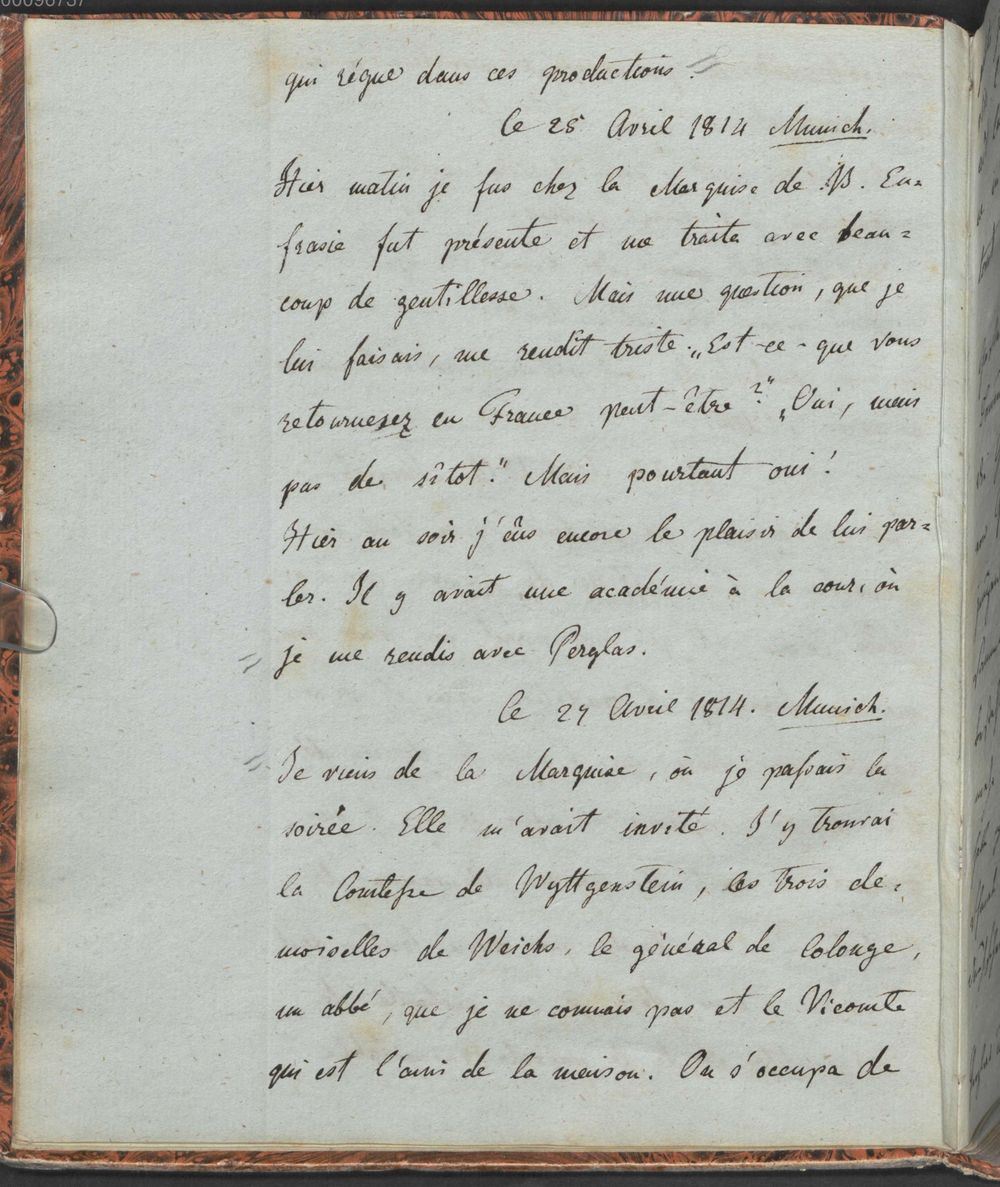 00096737
qui régne dans ces productions.
Le 25 Avril 1814 Munich.
Hier matin je fus chez la Marquise de B. Eu=
frasie fut présente et me traita avec beau=
coup de gentillesse. Mais une question, que je
lui faisais, me rendit triste. „Est-ce-que vous
retournerez en France peut-être?" „Oui, mais
pas de sîtot." Mais pourtant oui!
Hier au soir j'eûs encore le plaisir de lui par=
ler. Il y avait une académie à la cour, où
je me rendis avec Perglas.
Le 27 Avril 1814. Munich.
Je viens de la Marquise, où je passais la
soirée. Elle m'avait invité. J'y trouvai
la Comtesse de Wyttgenstein, les trois de=
moiselles de Weichs, le général de Colonge,
un abbé, que je ne connais pas et le Vicomte
qui est l'ami de la maison. On s'occupa de